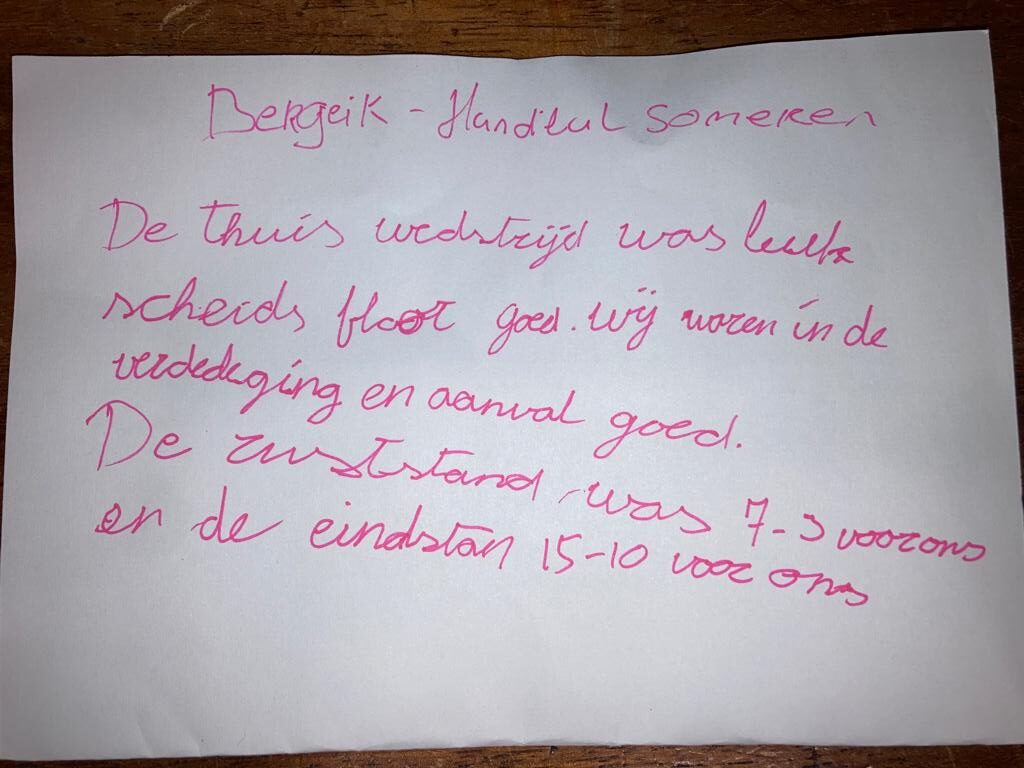 Bergeik - Handbul someren
De thuis wedstrijd was leuk
scheids floot goed. wij waren in de
verdedeging en aanval goed.
De ruststand was 7-3 voor ons
en de eindstan 15-10 voor ons